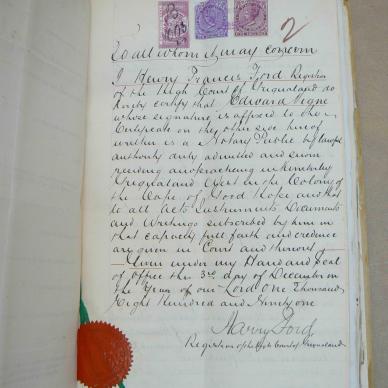 2
To all whom it may concern
I Henry Francis Ford Registrar
of the High Court of Griqualand do
hereby certify that Edward Vigne
whose signature is affixed to the
Certificate on the other side hereof
written is a Notary Public by lawful
authority duly admitted and sworn
residing and practising in Kimberley
Griqualand West in the Colony of
the Cape of Good Hope and that
to all Acts Instruments Documents
and Writings subscribed by him in
that capacity full faith and credence
are given in Court and thereout
Given under my Hand and Seal
of Office this 3rd day of December in
the Year of our Lord One Thousand
Eight Hundred and Ninety one
Harry Ford
Registrar of the High Court of Griqualand